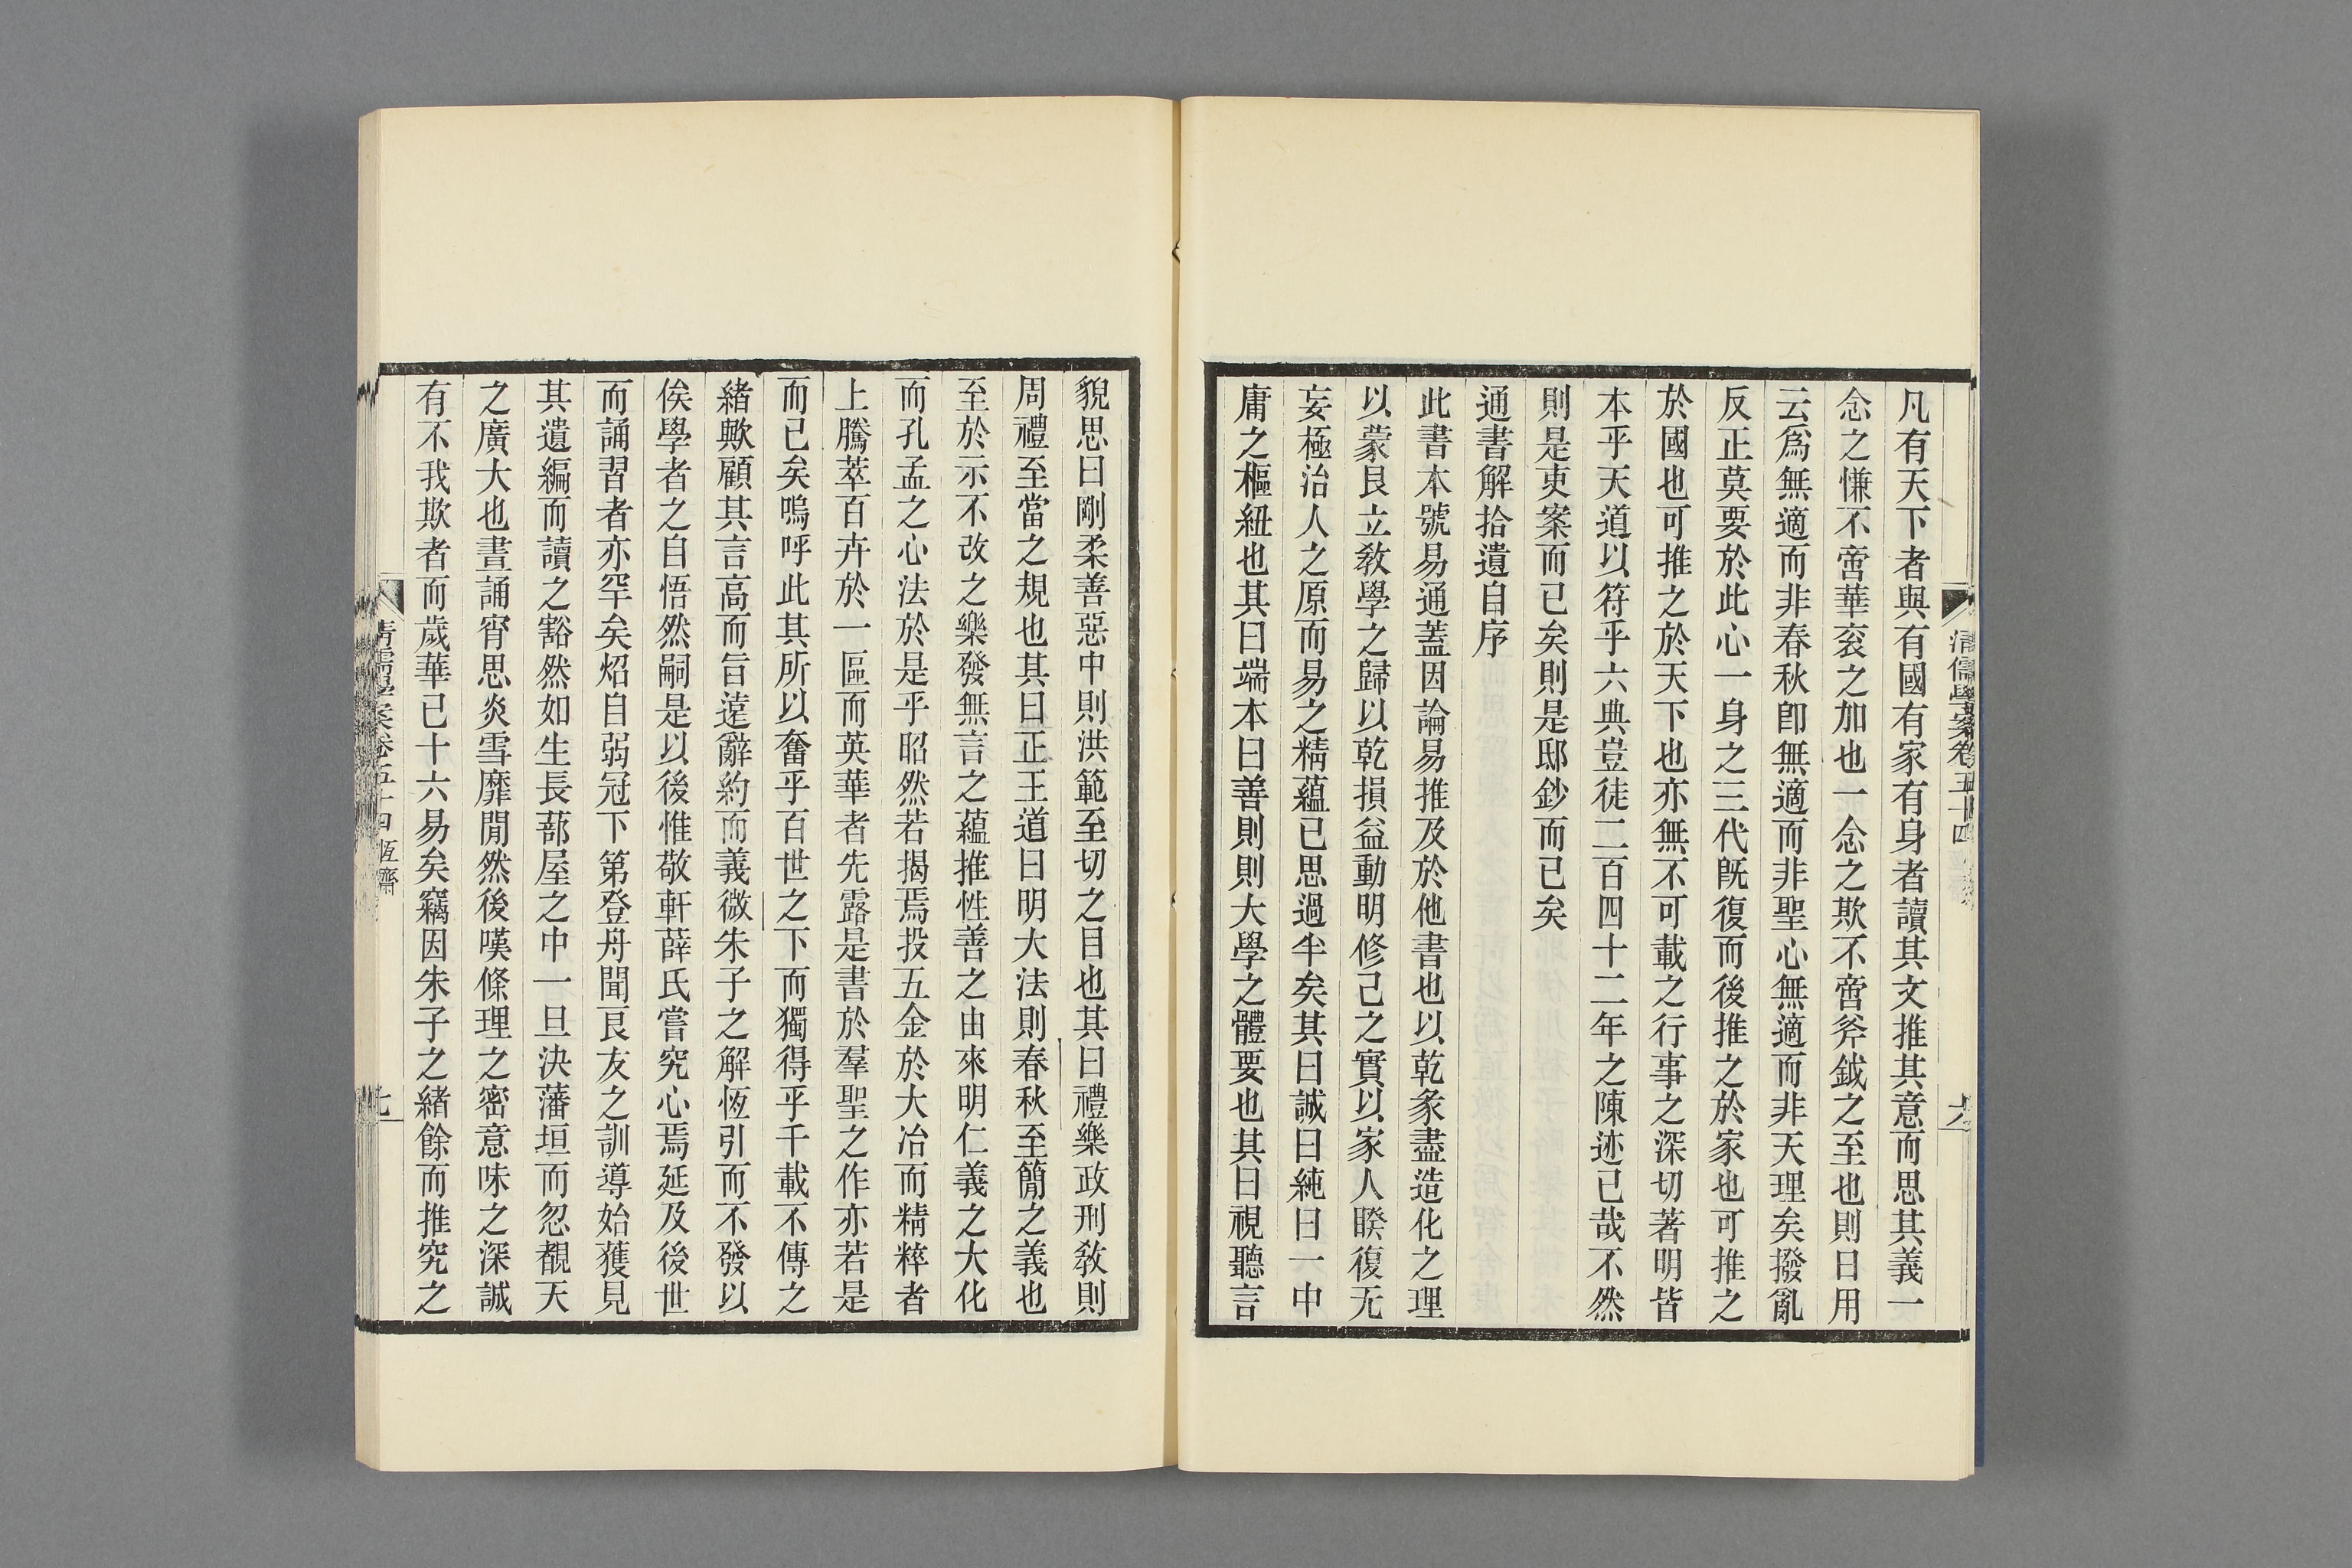 清儒學案卷五十四
六
凡有天下者與有國有家有身者讀其文推其意而思其義一
念之慊不啻華袞之加也一念之欺不啻斧鉞之至也則日用
云爲無適而非春秋卽無適而非聖心無適而非天理矣撥亂
反正莫要於此心一身之三代旣復而後推之於家也可推之
於國也可推之於天下也亦無不可載之行事之深切著明皆
本乎天道以符乎六典豈徒二百四十二年之陳迹已哉不然
則是吏案而已矣則是邸鈔而已矣
通書解拾遺自序
此書本號易通蓋因論易推及於他書也以乾彖盡造化之理
以蒙艮立敎學之歸以乾損益動明修己之實以家人睽復无
妄極治人之原而易之精蘊已思過半矣其曰誠曰純曰一中
庸之樞紐也其曰端本曰善則則大學之體要也其曰視聽言
貌思曰剛柔善惡中則洪範至切之目也其曰禮樂政刑敎則
周禮至當之規也其曰正王道曰明大法則春秋至簡之義也
至於示不改之樂發無言之蘊推性善之由來明仁義之大化
而孔孟之心法於是乎昭然若揭焉投五金於大冶而精粹者
上騰萃百卉於一區而英華者先露是書於羣聖之作亦若是
而已矣嗚呼此其所以奮乎百世之下而獨得乎千載不傳之
緒歟顧其言高而旨遠辭約而義微朱子之解恆引而不發以
俟學者之自悟然嗣是以後惟敬軒薛氏嘗究心焉延及後世
而誦習者亦罕矣炤自弱冠下第登舟聞良友之訓導始獲見
其遺編而讀之豁然如生長蔀屋之中一旦決藩垣而忽覩天
之廣大也晝誦宵思炎雪靡閒然後嘆條理之密意味之深誠
有不我欺者而歲華已十六易矣竊因朱子之緒餘而推究之
清儒學案卷五十四 恆齋
七